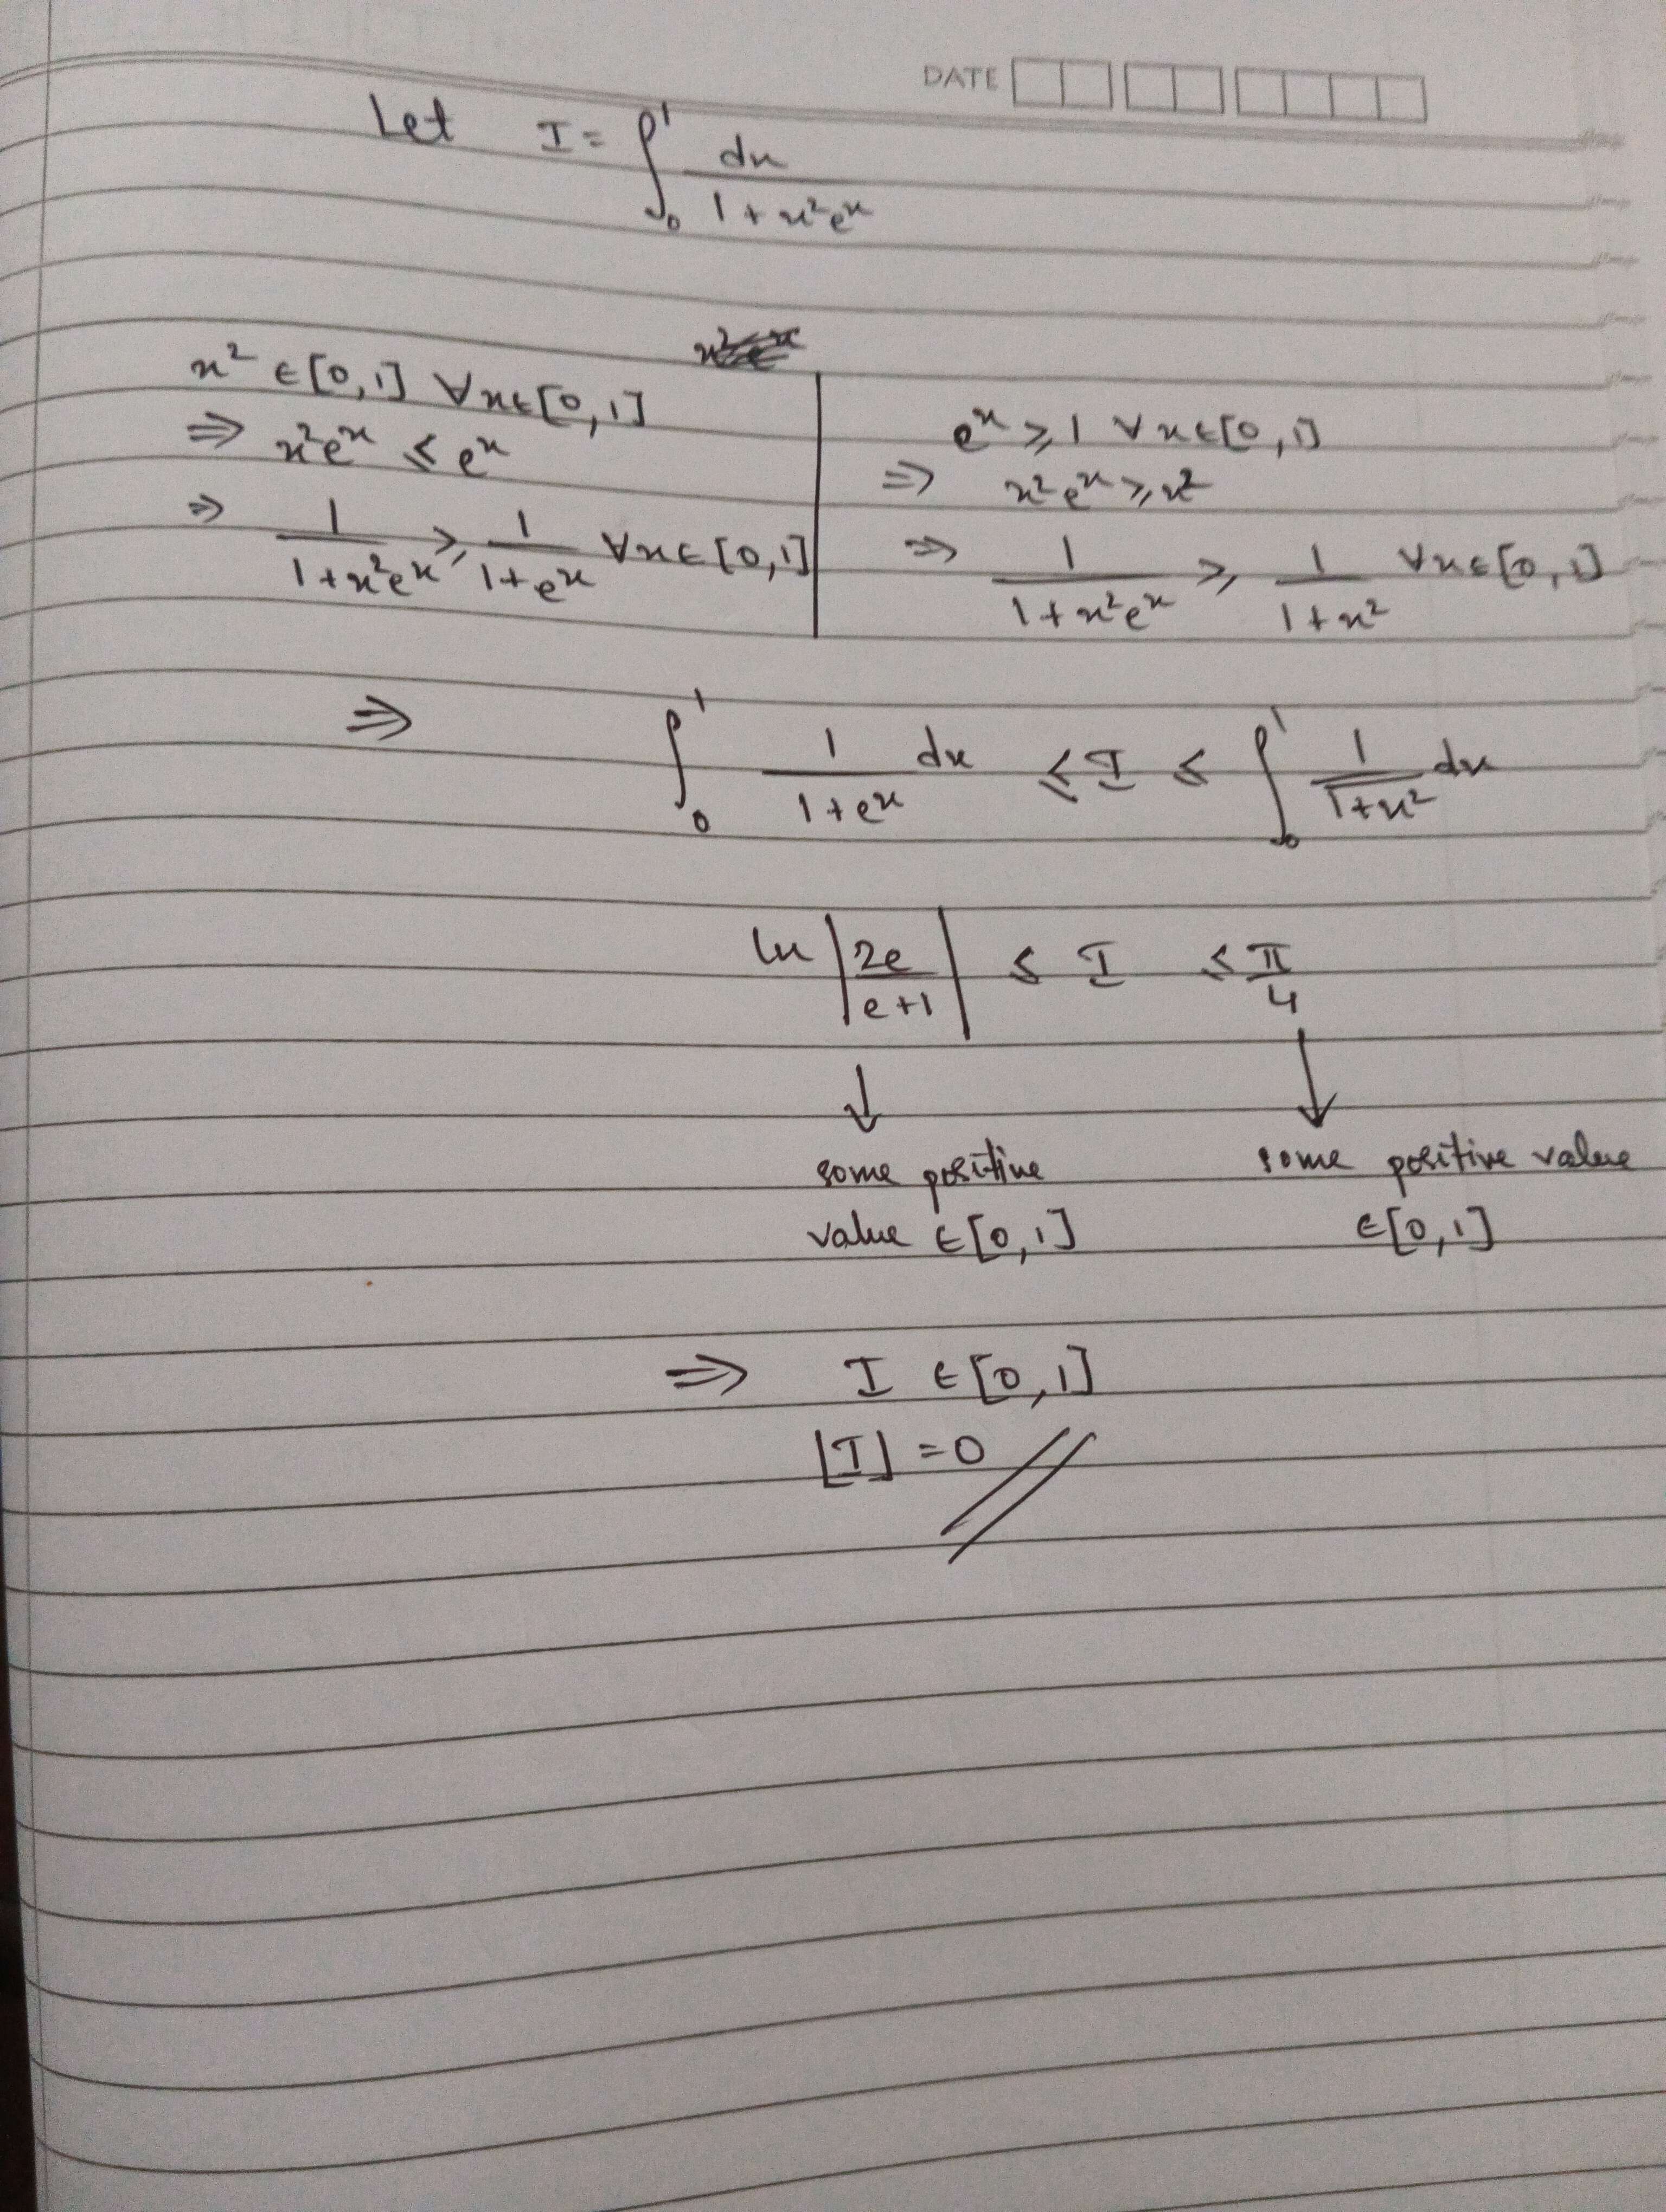 DATE
Let I = ∫₀¹ dx / (1 + x²eˣ)
x² ∈ [0,1] ∀x∈[0,1]
⇒ x²eˣ ≤ eˣ
⇒ 1/(1+x²eˣ) ≥ 1/(1+eˣ) ∀x∈[0,1]
eˣ ≥ 1 ∀x∈[0,1]
⇒ x²eˣ ≥ x²
⇒ 1/(1+x²eˣ) ≥ 1/(1+x²) ∀x∈[0,1]
⇒ ∫₀¹ 1/(1+eˣ) dx ≤ I ≤ ∫₀¹ 1/(1+x²) dx
ln |2e/(e+1)| ≤ I ≤ π/4
↓ ↓
some positive value ∈[0,1]
some positive value ∈[0,1]
⇒ I ∈ [0,1]
⌊I⌋ = 0